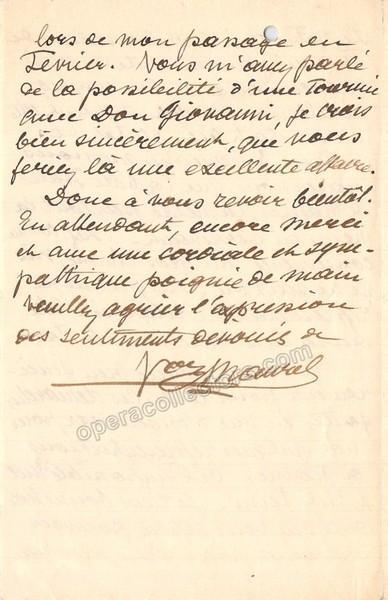 lors de mon passage en
Février. Vous m'avez parlé
de la possibilité d'une Tournée
avec Don Giovanni, je crois
bien sincèrement, que vous
feriez là une excellente affaire.
Donc à vous revoir bientôt.
En attendant, encore merci
et avec une cordiale et sym-
pathique poignée de main
veuillez agréer l'expression
des sentiments dévoués de
Vor Maurel
operacollection.com